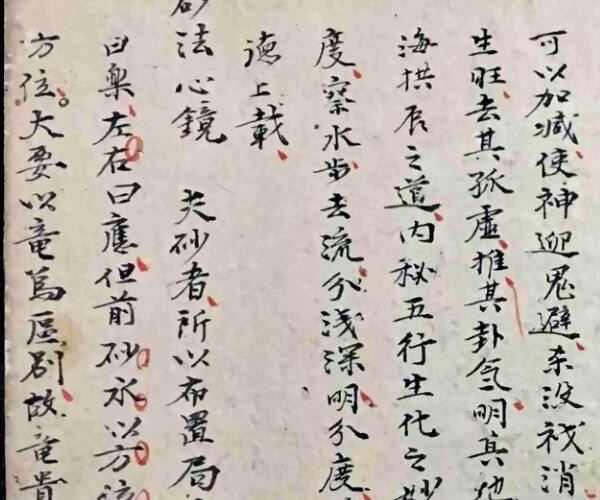 可以加减使神迎鬼避杀没祸消
生旺去其孤虚推其卦气明其
海拱辰之道内秘五行生化之妙
度察水步去流分浅深明分度
德上载
砂法心鏡 夫砂者所以布置局
曰樂左右曰應但前砂水以方
方位大要以竜為區别故竜貴